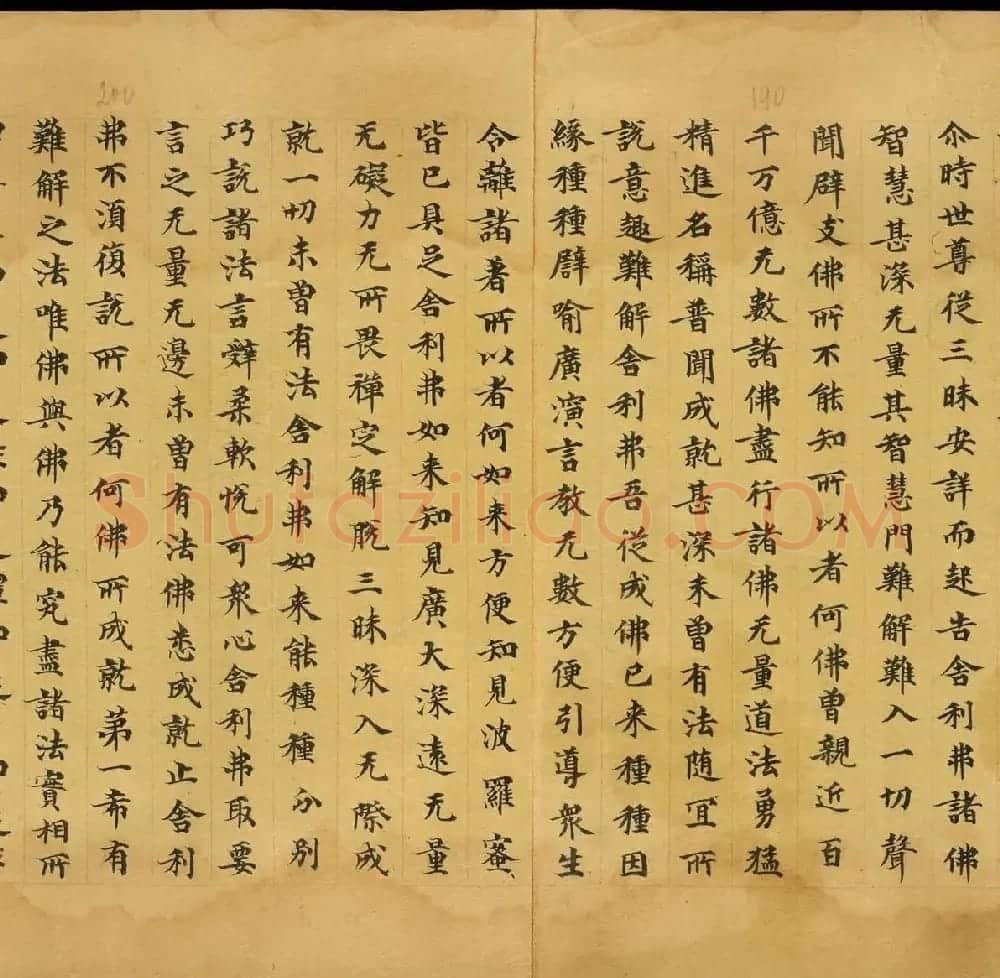 尒時世尊従三昧安詳而起告舍利弗諸佛
智慧甚深无量其智慧門難解難入一切聲
聞辟支佛所不能知所以者何佛曽親近百
千万億无數諸佛盡行諸佛无量道法勇猛
精進名稱普聞成就甚深未曽有法随冝所
説意趣難解舍利弗吾従成佛已来種種因
緣種種譬喻廣演言教无數方便引導衆生
令離諸著所以者何如来方便知見波羅蜜
皆已具足舍利弗如来知見廣大深遠无量
无礙力无所畏禪定解脫三昧深入无際成
就一切未曽有法舍利弗如来能種種分別
巧説諸法言辭柔軟悅可衆心舍利弗取要
言之无量无邊未曽有法佛悉成就止舍利
弗不湏復説所以者何佛所成就第一希有
難解之法唯佛與佛乃能究盡諸法實相所
190
200
Shufaziliao.COM